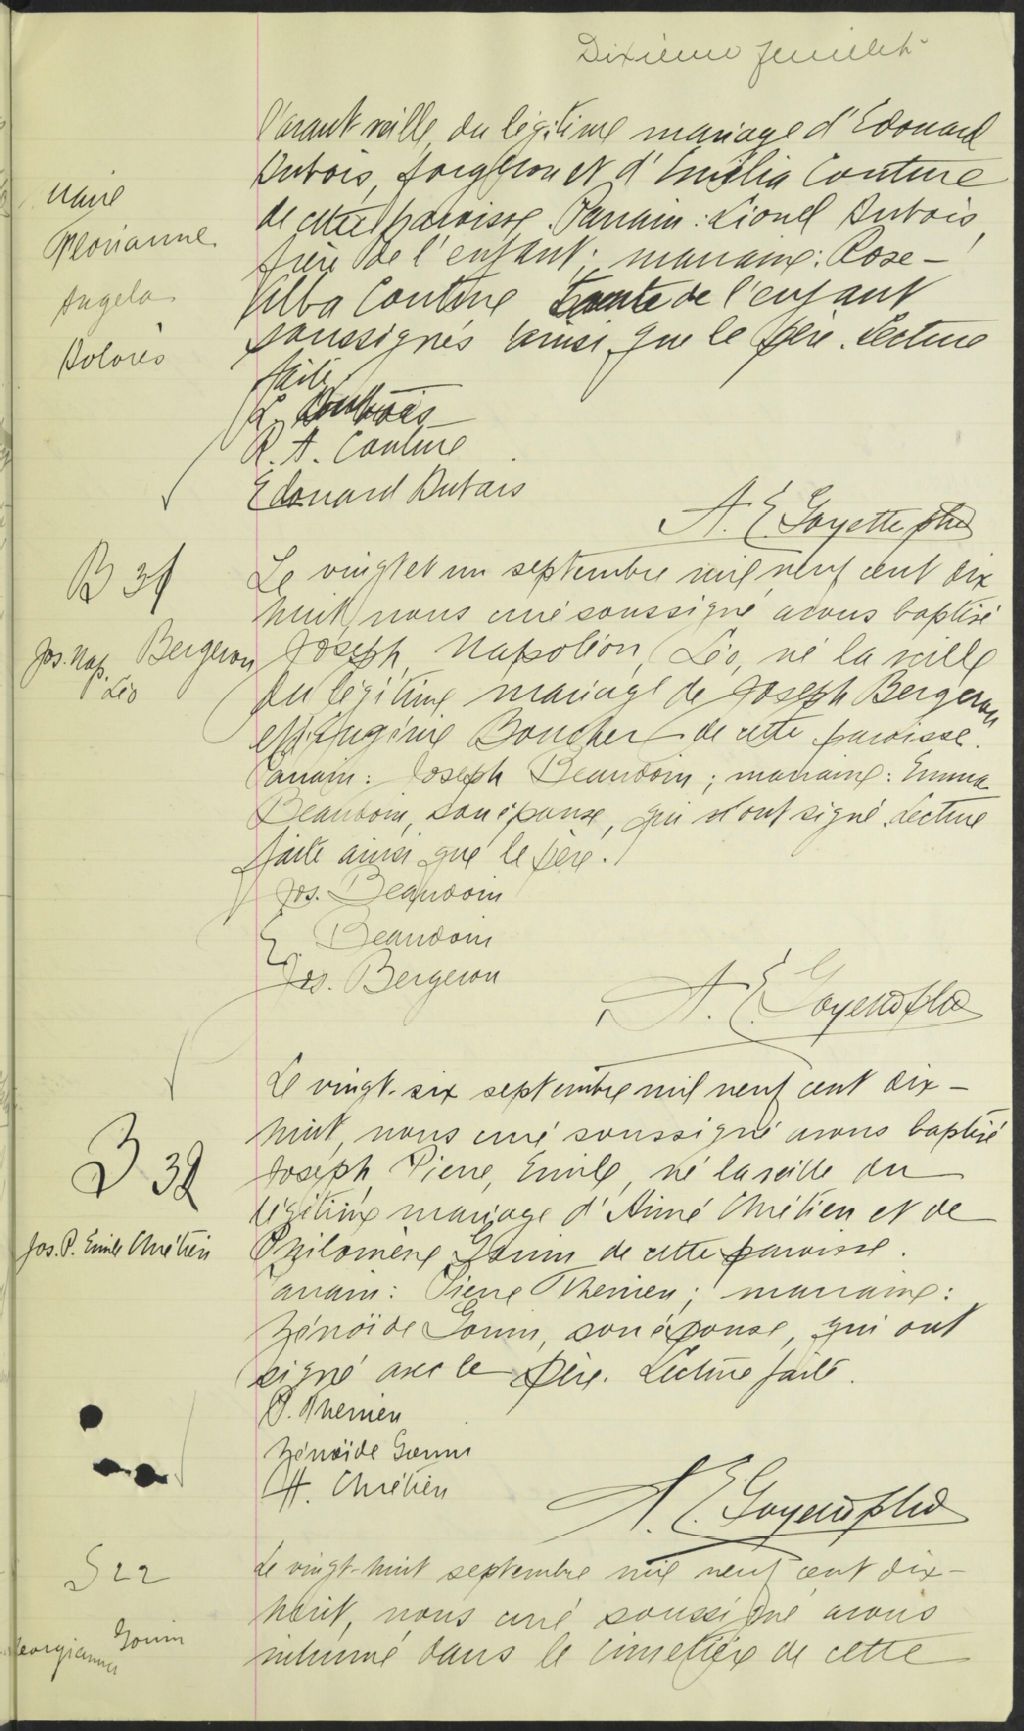 Dixième feuillet
l'avant veille, du légitime mariage d'Edouard
Dubois, forgeron et d'Emilia Couture
de cette paroisse. Parrain: Lionel Dubois,
frère de l'enfant; marraine: Rose-
Alba Couture tante de l'enfant
soussignés ainsi que le père. Lecture
faite.
Marie
Florianne
Angela
Dolorès
L. Dubois
R. A. Couture
Edouard Dubois
A. E. Goyette ptre
B 31
Jos. Nap. Bergeron
Léo
Le vingt et un septembre mil neuf cent dix
huit, nous curé soussigné avons baptisé
Joseph, Napoléon, Léo, né la veille
du légitime mariage de Joseph Bergeron
et Eugénie Boucher de cette paroisse.
Parrain: Joseph Beaudoin; marraine: Emma
Beaudoin, son épouse, qui ont signé. Lecture
faite ainsi que le père.
Jos. Beaudoin
E. Beaudoin
Jos. Bergeron
A. E. Goyette ptre
B 32
Jos. P. Emile Chrétien
Le vingt-six septembre mil neuf cent dix-
huit, nous curé soussigné avons baptisé
Joseph, Pierre, Emile, né la veille du
légitime mariage d'Aimé Chrétien et de
Philomène Gouin de cette paroisse.
Parrain: Pierre Therrien; marraine:
Zénoïde Gouin, son épouse, qui ont
signé avec le père. Lecture faite.
P. Therrien
Zénoïde Gouin
A. Chrétien
A. E. Goyette ptre
S 22
Georgianna Gouin
Le vingt-huit septembre mil neuf cent dix-
huit, nous curé soussigné avons
inhumé dans le cimetière de cette